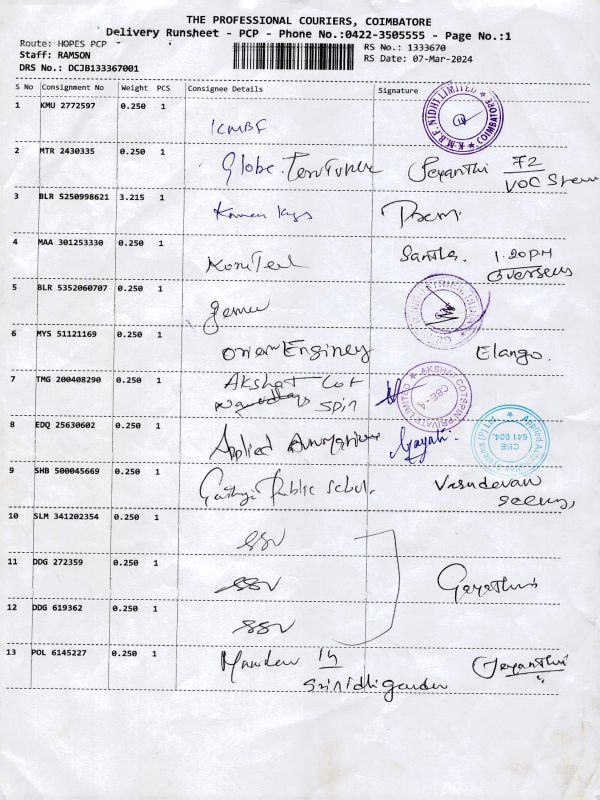 THE PROFESSIONAL COURIERS, COIMBATORE
Delivery Runsheet - PCP - Phone No.:0422-3505555 - Page No.:1
Route: HOPES PCP
RS No.: 1333670
Staff: RAMSON
RS Date: 07-Mar-2024
DRS No.: DCJB133367001
S No Consignment No Weight PCS Consignee Details Signature
1 KMU 2772597 0.250 1
KMBF
K M B F NIDHI LIMITED COIMBATORE
2 MTR 2430335 0.250 1
Globe Jeyanthi 72
VOC
3 BLR 5250998621 3.215 1
4 MAA 301253330 0.250 1
1.20PM
5 BLR 5352060707 0.250 1
6 MYS 51121169 0.250 1
Elango.
7 TMG 200408290 0.250 1
Akshat Cot
Spin
AKSHAT COTSPIN PRIVATE LIMITED
CBE-4
8 EDQ 25630602 0.250 1
Applied Gayati.
CBE
641 004.
9 SHB 500045669 0.250 1
Public School. Vasudevan
10 SLM 341202354 0.250 1
SSV
11 DDG 272359 0.250 1
SSV Gayathri
12 DDG 619362 0.250 1
SSV
13 POL 6145227 0.250 1
14 Jeyanthi
Srinidhi garden